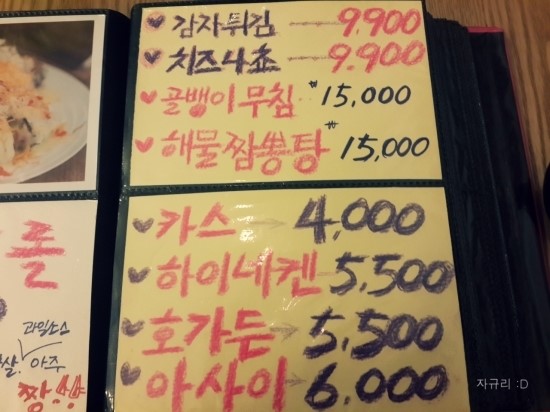 ♥ 감자튀김 — 9.900
♥ 치즈나쵸 — 9.900
♥ 골뱅이무침 ₩15,000
♥ 해물짬뽕탕 ₩15,000
♥ 카스 → 4,000
♥ 하이네켄 → 5,500
♥ 호가든 → 5,500
♥ 아사이 → 6,000
롤
과일소스
살. 아주
짱.먕
자규리 :D